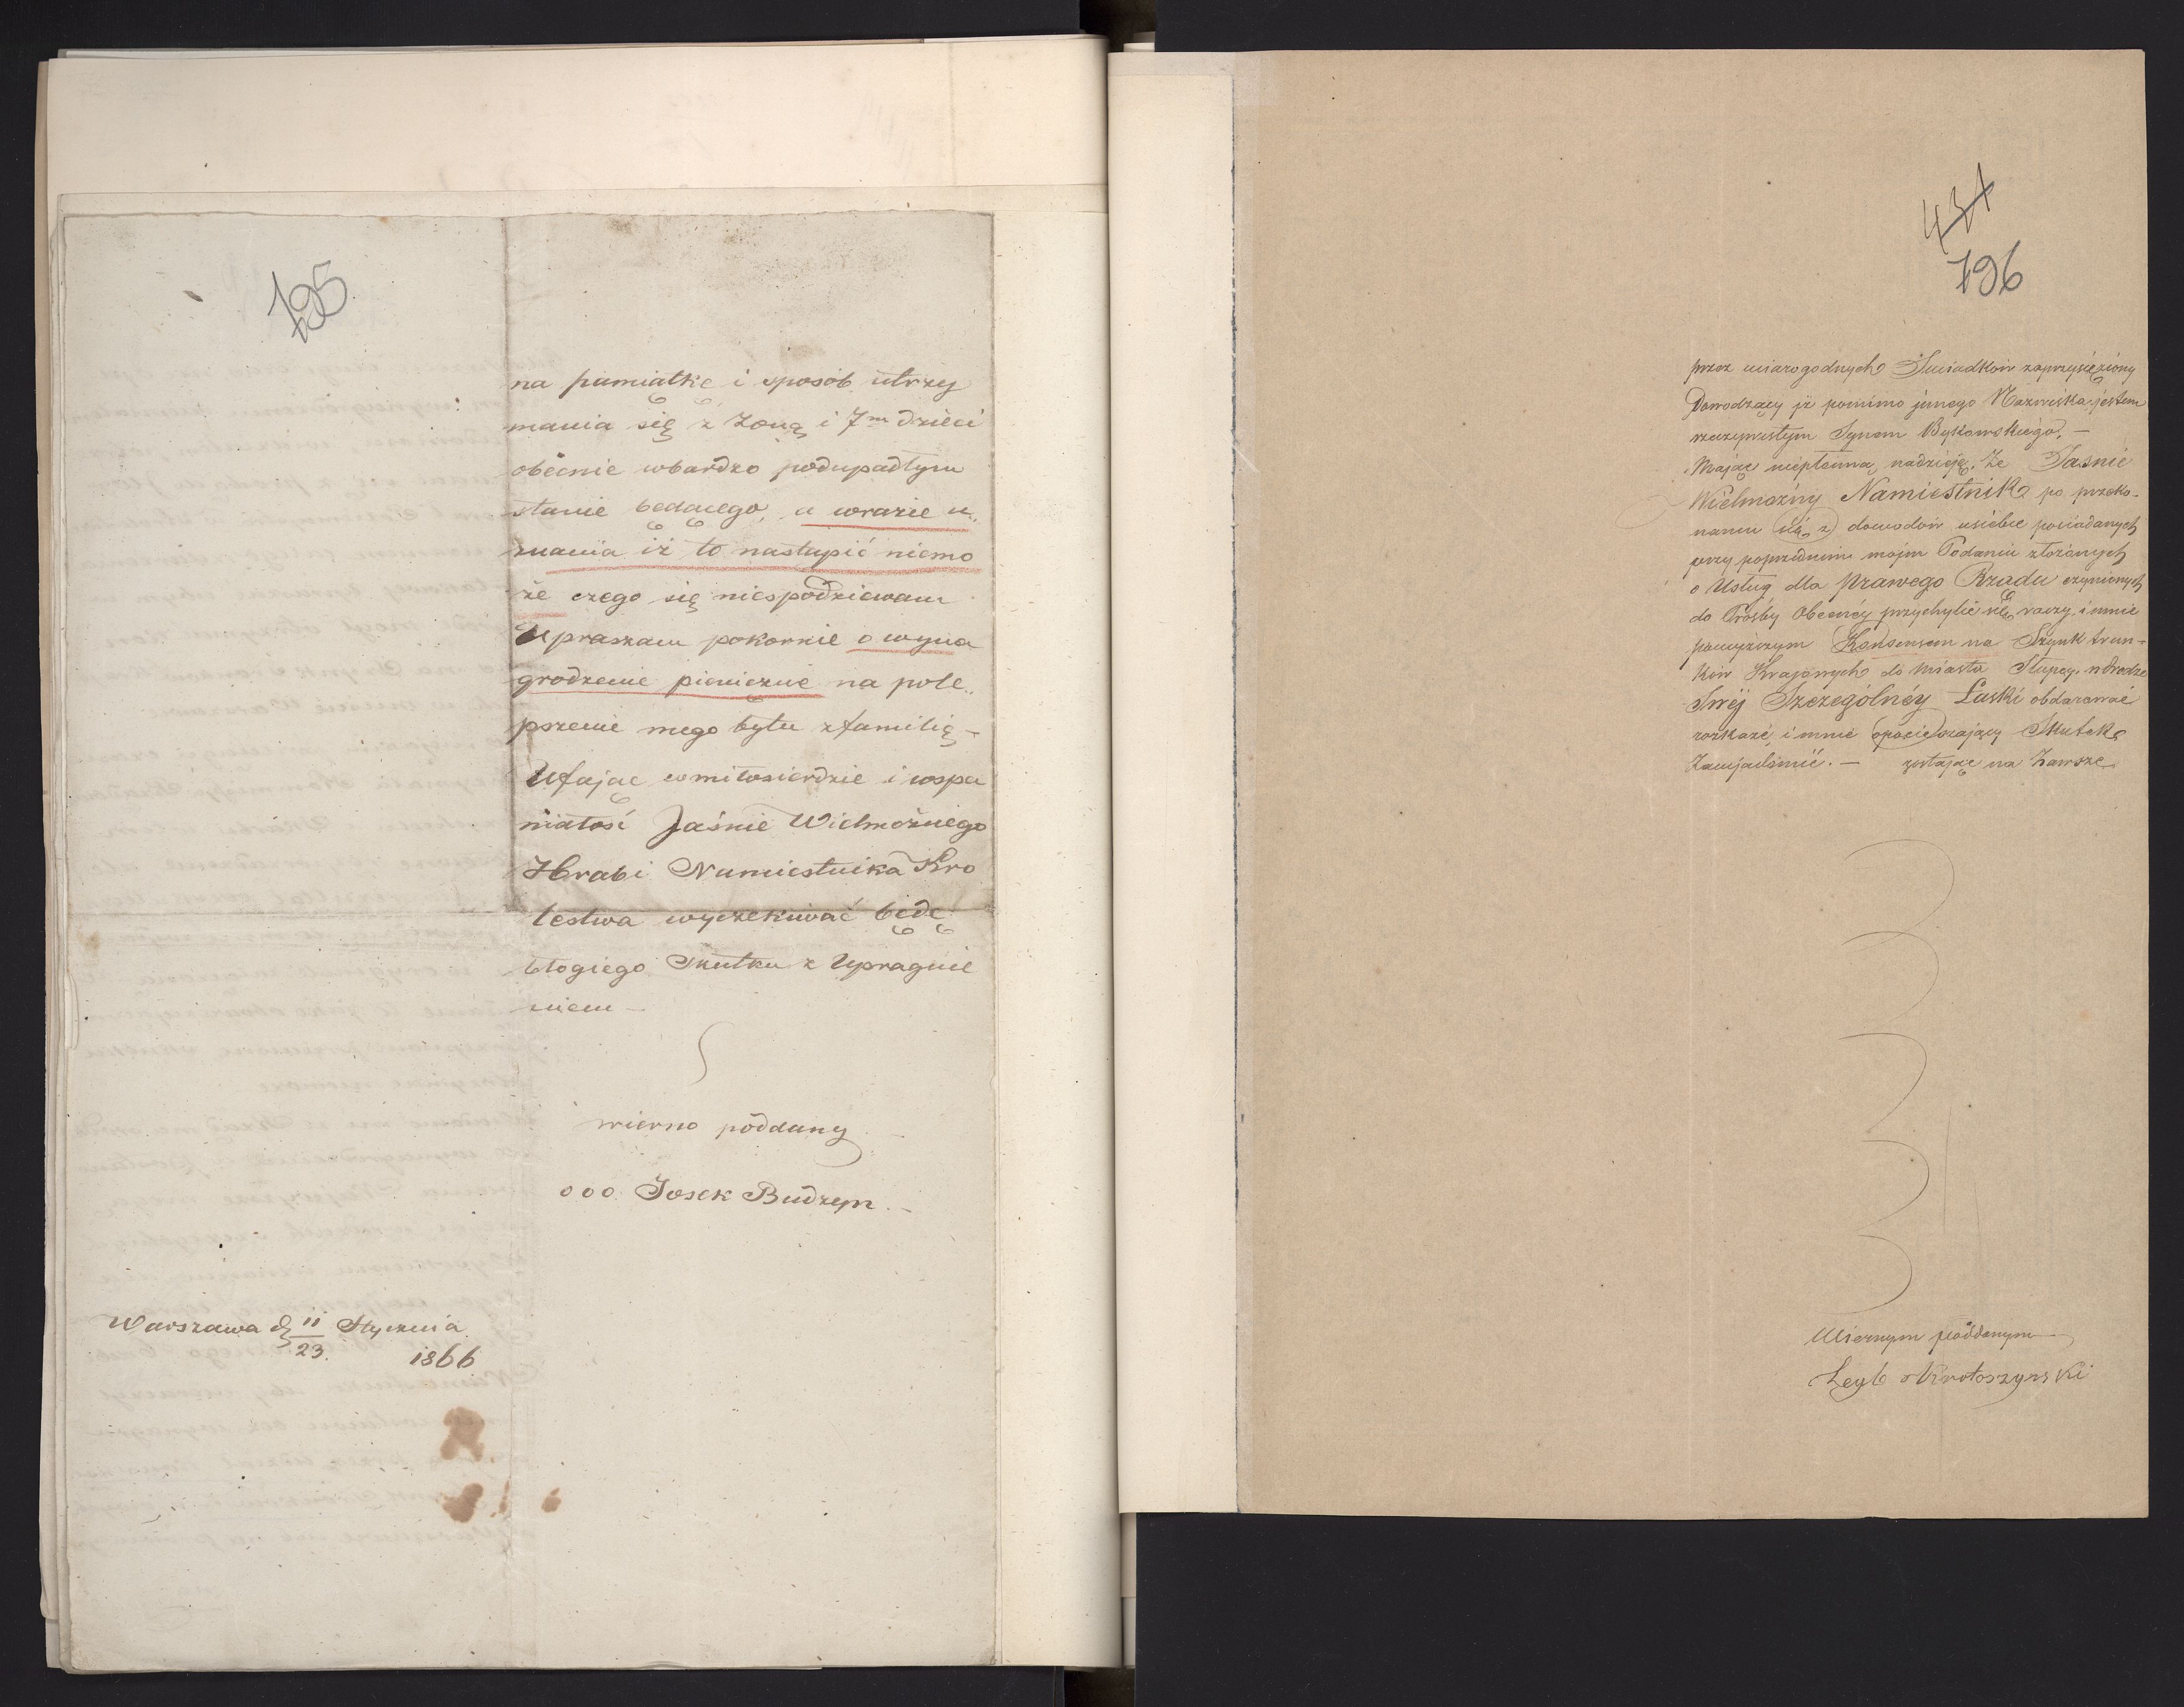 195
na pamiątkę i sposób utrzy
mania się z Żoną i 7m dzieci
obecnie wbardzo podupadłym
stanie będącego, a wrazie u„
znania iż to nastąpić niemo
że czego się niespodziewam
Upraszam pokornie o wyna
grodzenie pieniężne na pole„
pszenie mego bytu zfamilią –
Ufając wmiłosierdzie i wspa
niałość Jaśnie Wielmożnego
Hrabi Namiestnika Kró
lestwa wyczekiwać będę
błogiego Skutku z Upragnie
niem –
wierno poddany
ooo Josek Budzyn. –
Warszawa d 11/23. Stycznia
1866
437
196
przez wiarogodnych Swiadków zaprzysiężony
Dowodzący iż pomimo innego Nazwiska jestem
rzeczywistym Synem Bykowskiego. –
Mając niepłonną nadzieję, że Jasnie
Wielmożny Namiestnik po przeko-
naniu się z dowodów usiebie posiadanych
przy poprzednim mojm Podaniu złożonych
o Usług dla Prawego Rządu czynionych
do Prośby Obecnéj przychylić się raczy, i mnie
powyższym Konsensem na Szynk trun-
ków Krajowych do Miasta Słupcy, wdrodze
Swéj Szczególnéj Łaski obdarować
rozkaże, i mnie Skutek
zostając na Zawsze
Wiernym poddanym
Leyb Krotoszynski